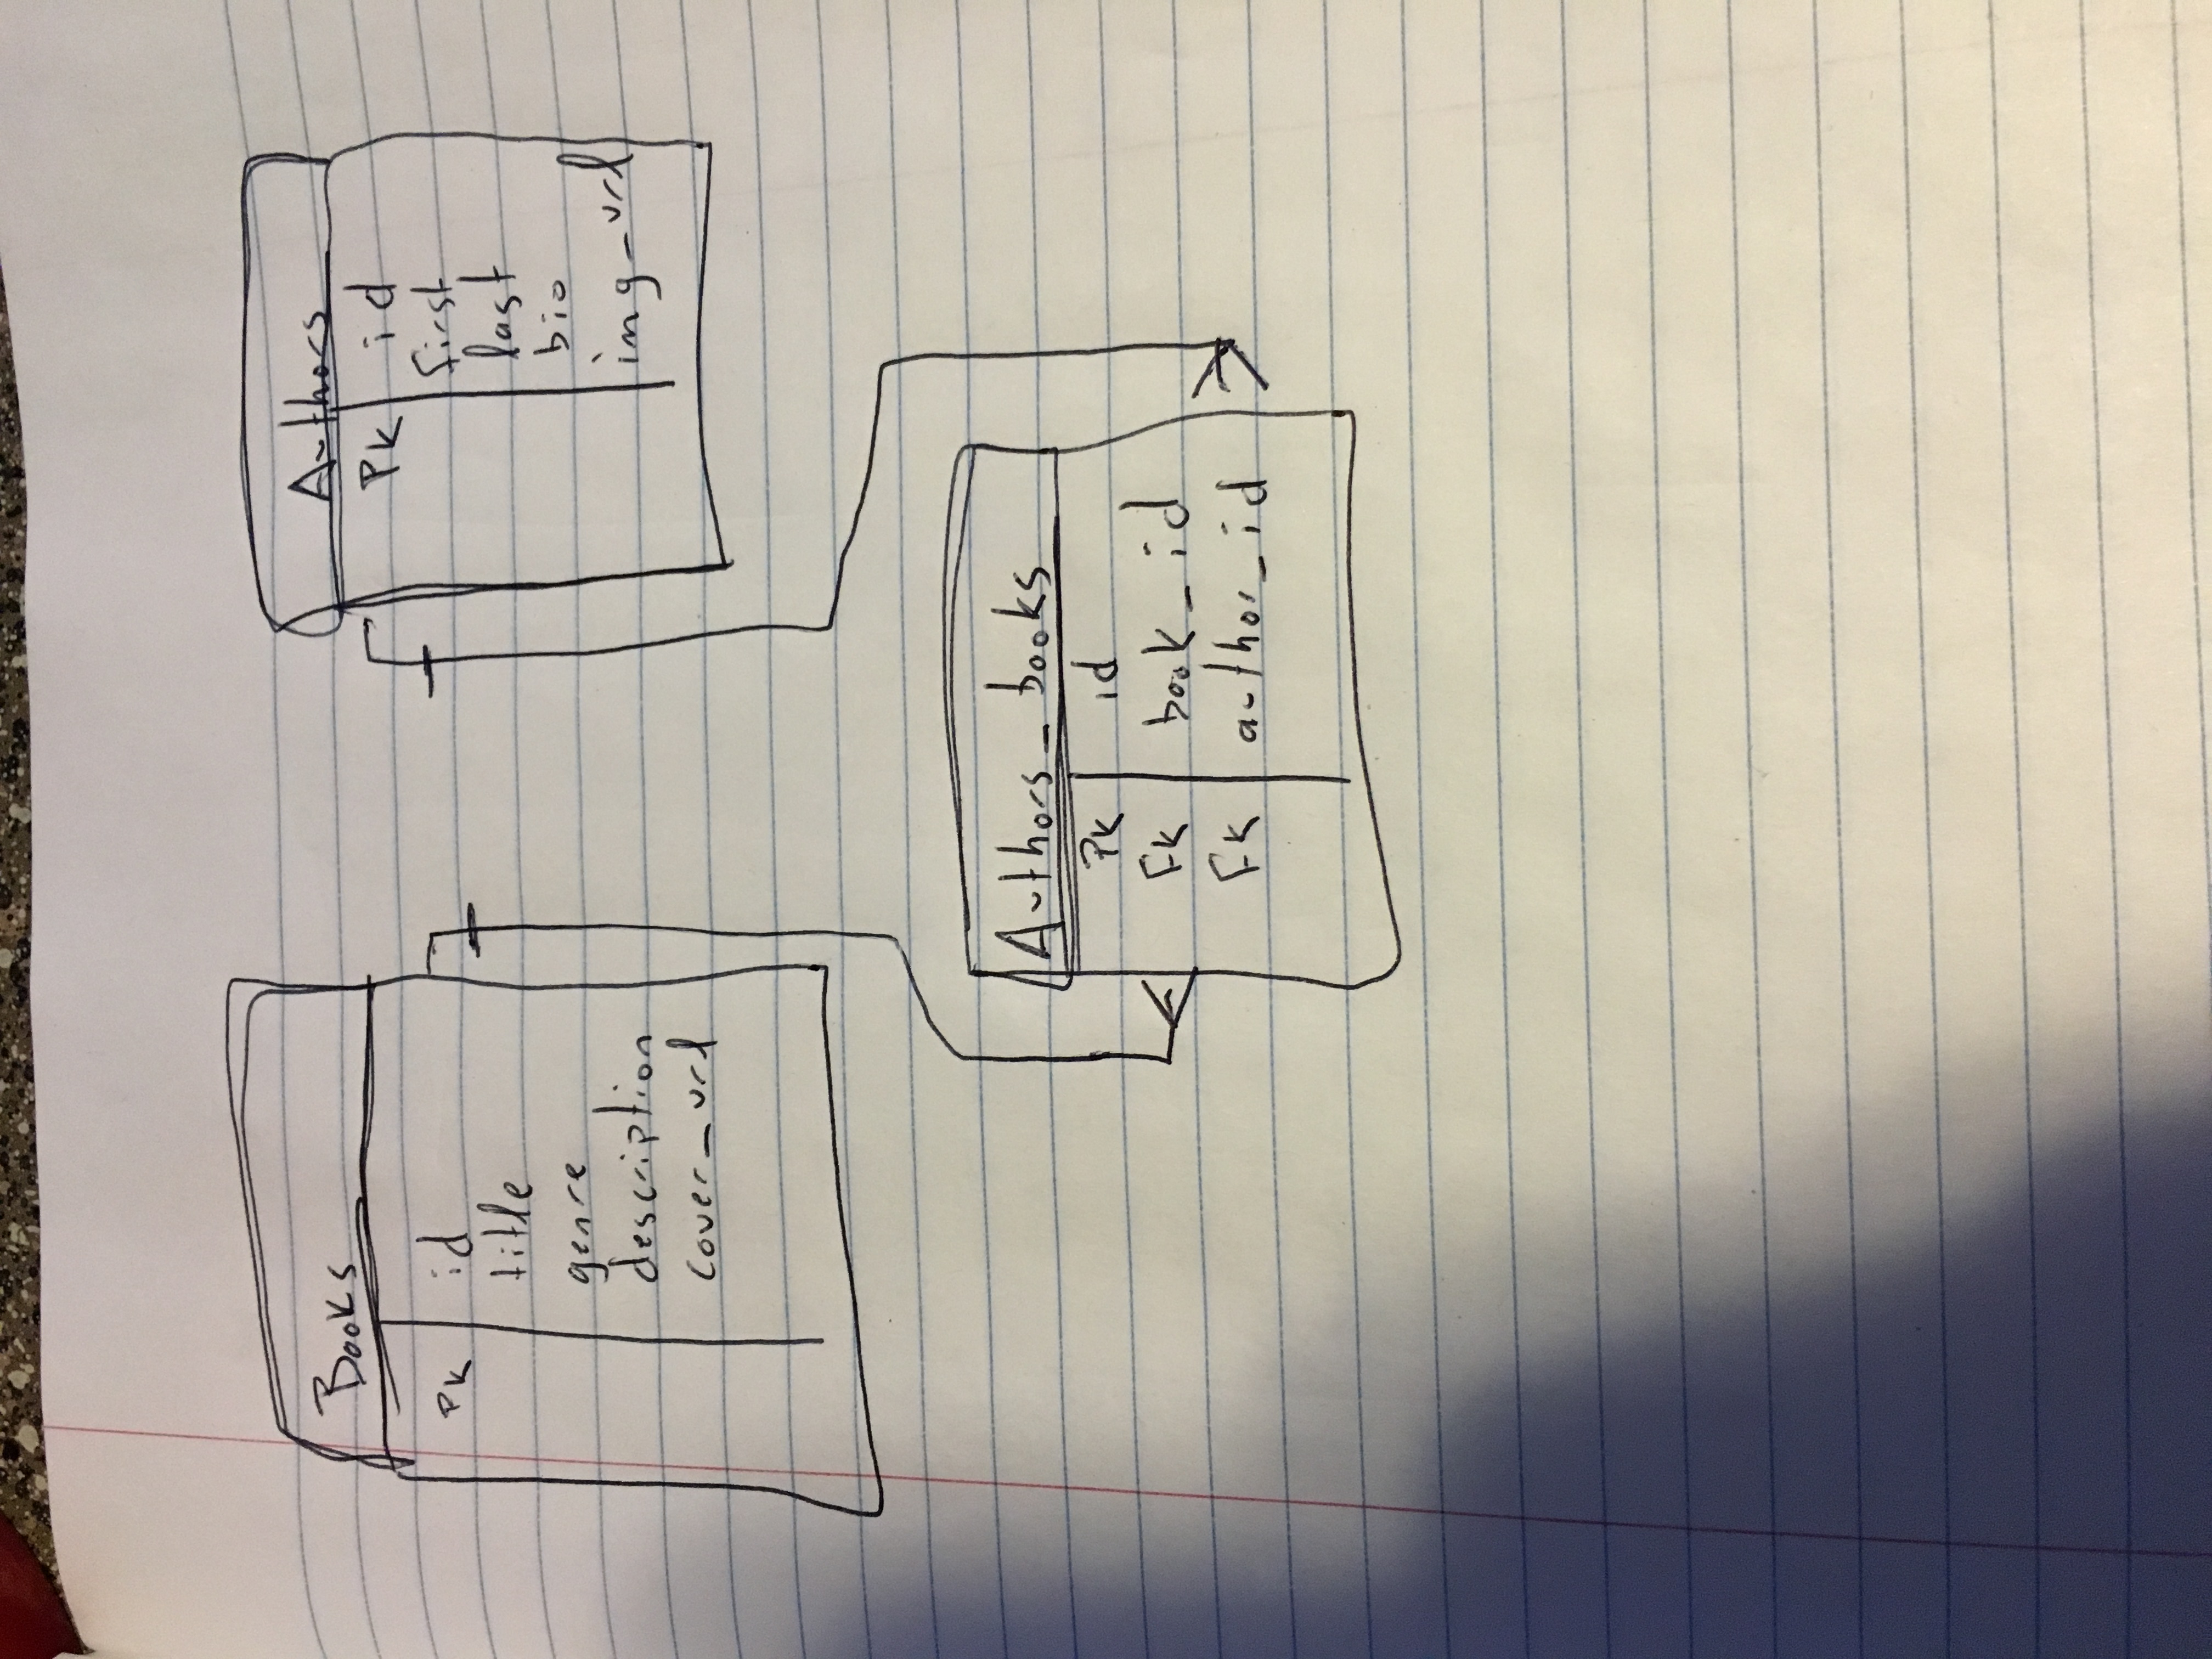 Books
PK id
title
genre
description
cover_url
Authors
PK id
first
last
bio
img_url
Authors_books
PK id
FK book_id
FK author_id